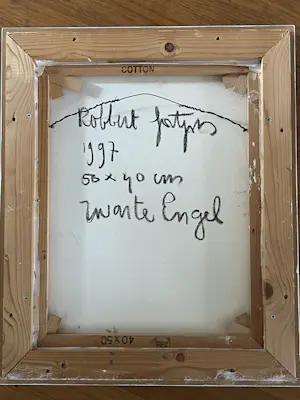 COTTON
Robbert
1997
50 x 40 cm
Zwarte Engel
40x50